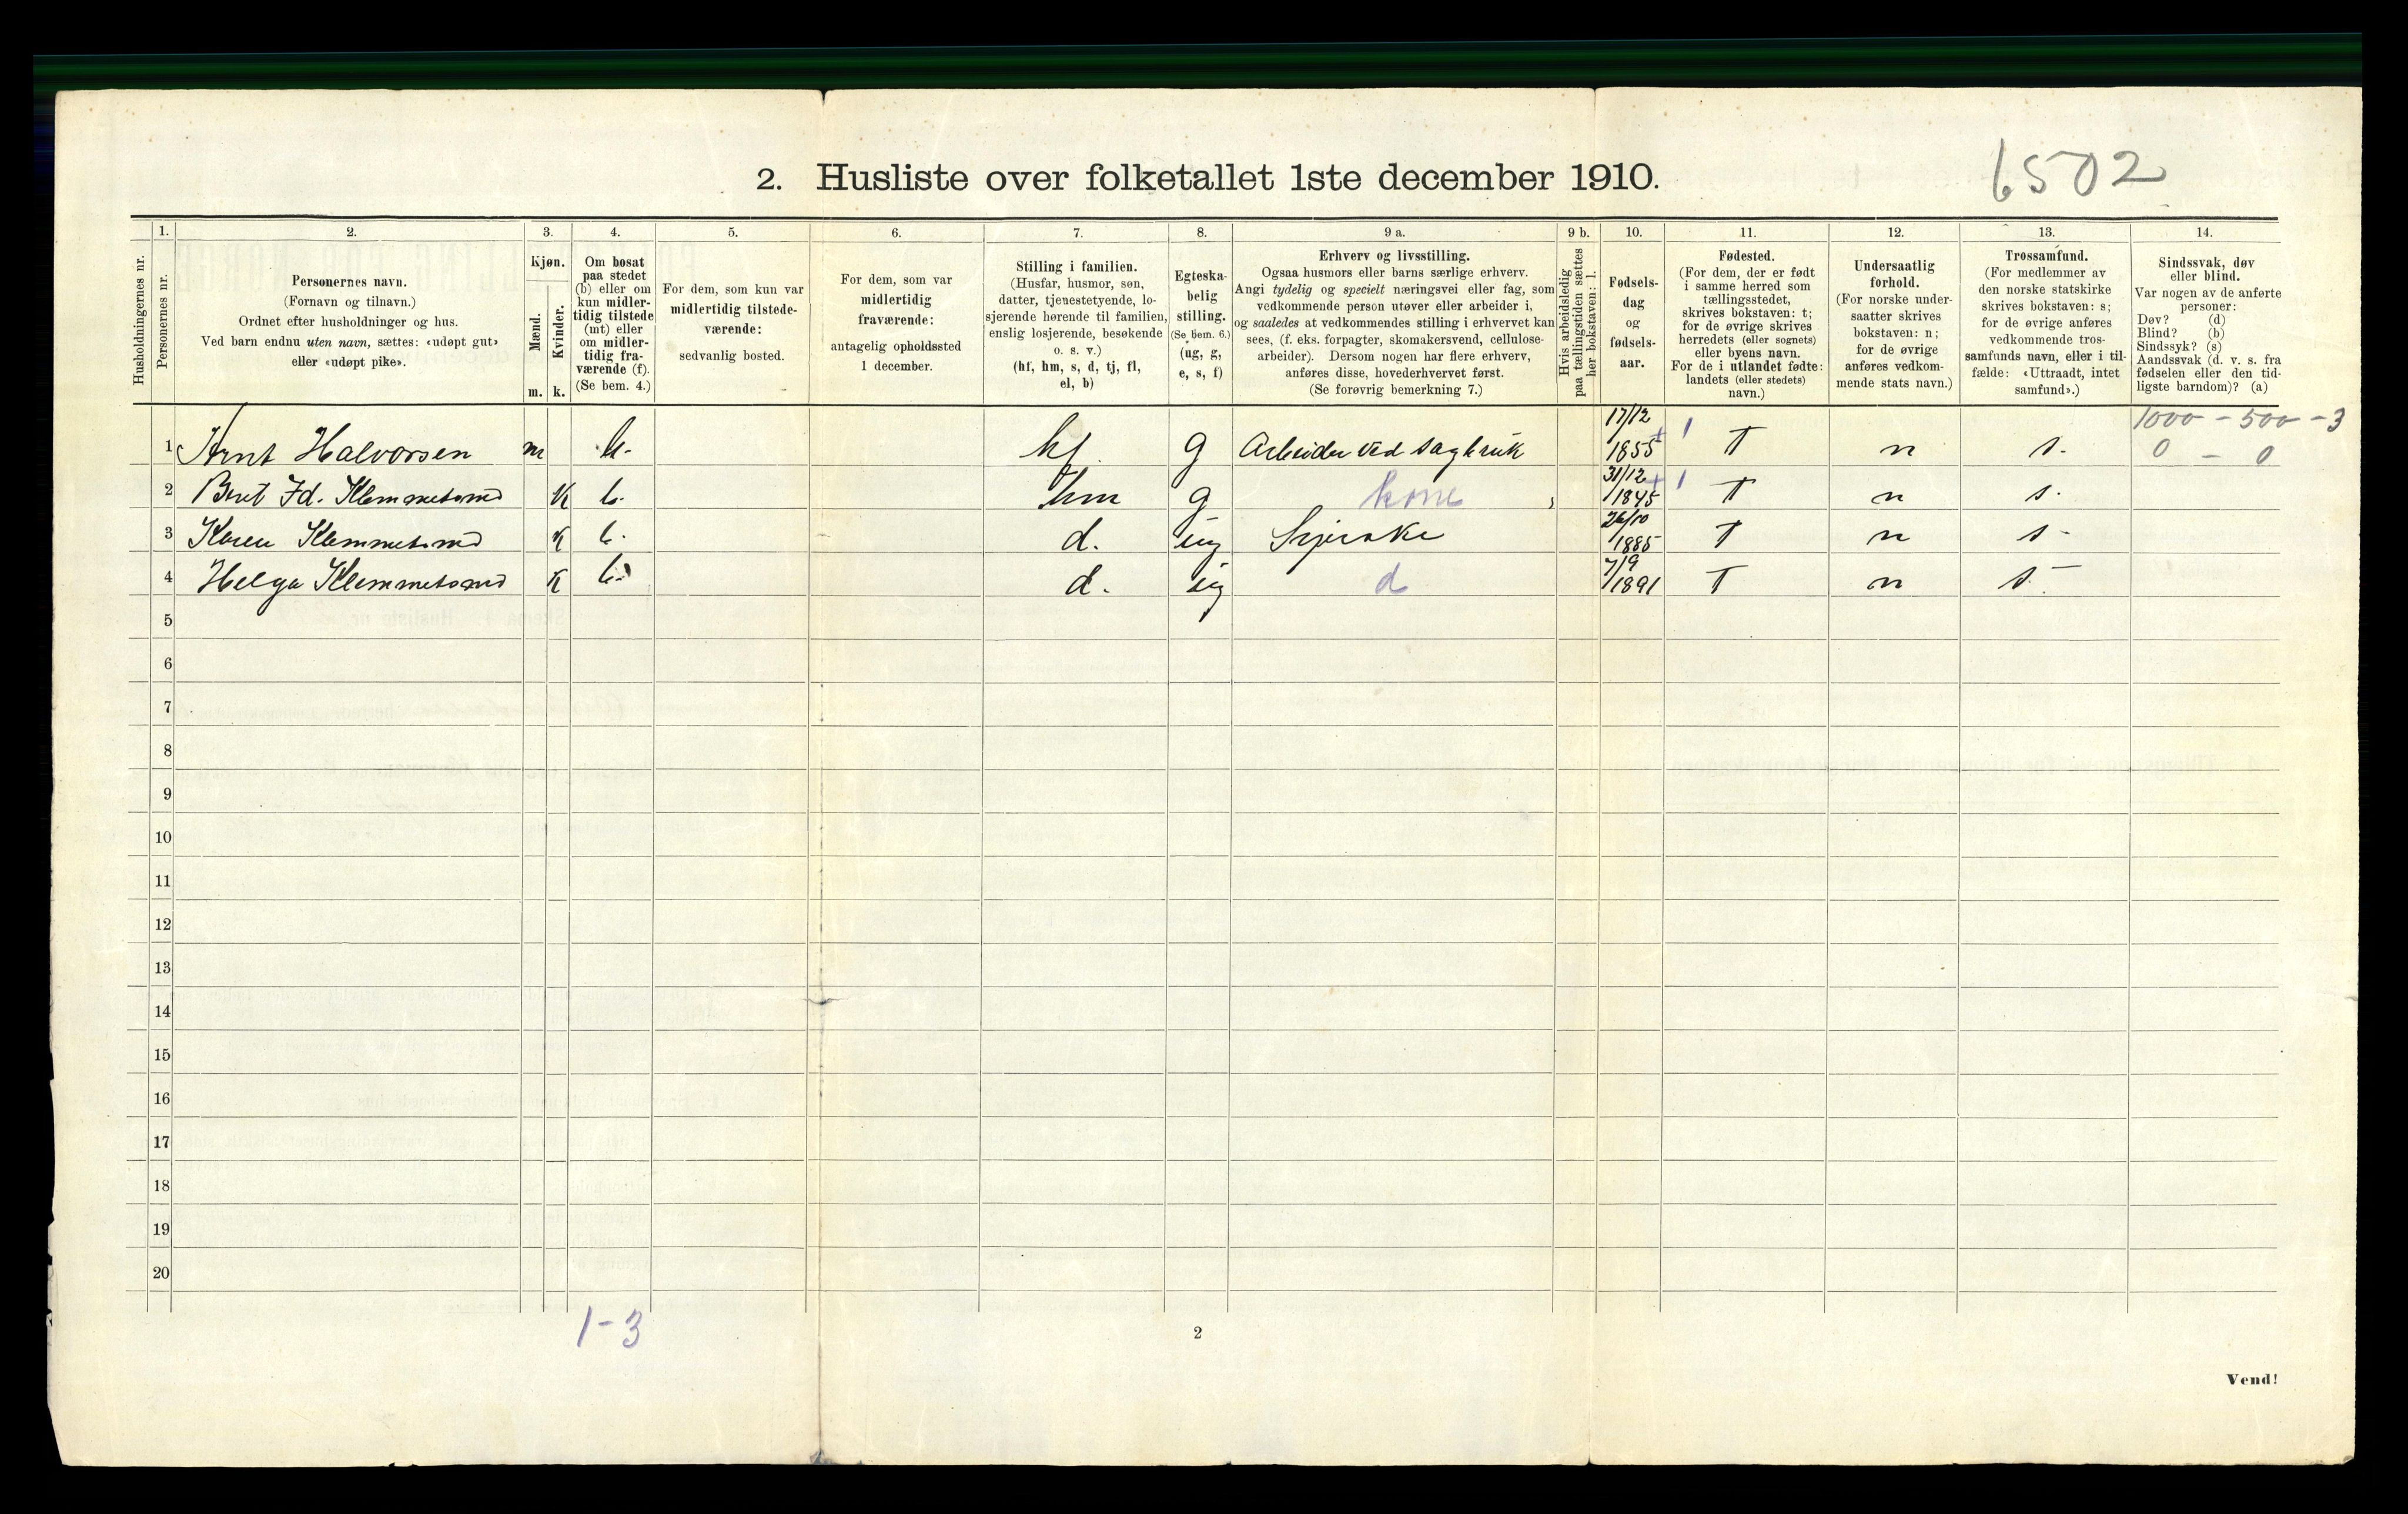 6502
2. Husliste over folketallet 1ste december 1910.
Husholdningernes nr.
1.
Personernes nr.
2.
Personernes navn.
(Fornavn og tilnavn.)
Ordnet efter husholdninger og hus.
Ved barn endnu uten navn, sættes: «udøpt gut»
eller «udøpt pike».
3.
Kjøn.
Mænd.
Kvinder.
m. k.
4.
Om bosat
paa stedet
(b) eller om
kun midler-
tidig tilstede
(mt) eller
om midler-
tidig fra-
værende (f).
(Se bem. 4.)
5.
For dem, som kun var
midlertidig tilstede-
værende:
sedvanlig bosted.
6.
For dem, som var
midlertidig
fraværende:
antagelig opholdssted
1 december.
7.
Stilling i familien.
(Husfar, husmor, søn,
datter, tjenestetyende, lo-
sjerende hørende til familien,
enslig losjerende, besøkende
o. s. v.)
(hf, hm, s, d, tj, fl,
el, b)
8.
Egteska-
belig
stilling.
(Se bem. 6.)
(ug, g,
e, s, f)
9 a.
Erhverv og livsstilling.
Ogsaa husmors eller barns særlige erhverv.
Angi tydelig og specielt næringsvei eller fag, som
vedkommende person utøver eller arbeider i,
og saaledes at vedkommendes stilling i erhvervet kan
sees, (f. eks. forpagter, skomakersvend, cellulose-
arbeider). Dersom nogen har flere erhverv,
anføres disse, hovederhvervet først.
(Se forøvrig bemerkning 7.)
9 b.
Hvis arbeidsledig
paa tællingstiden sættes
her bokstaven: l.
10.
Fødsels-
dag
og
fødsels-
aar.
11.
Fødested.
(For dem, der er født
i samme herred som
tællingsstedet,
skrives bokstaven: t;
for de øvrige skrives
herredets (eller sognets)
eller byens navn.
For de i utlandet fødte:
landets (eller stedets)
navn.)
12.
Undersaatlig
forhold.
(For norske under-
saatter skrives
bokstaven: n;
for de øvrige
anføres vedkom-
mende stats navn.)
13.
Trossamfund.
(For medlemmer av
den norske statskirke
skrives bokstaven: s;
for de øvrige anføres
vedkommende tros-
samfunds navn, eller i til-
fælde: «Uttraadt, intet
samfund».)
14.
Sindssvak, døv
eller blind.
Var nogen av de anførte
personer:
Døv? (d)
Blind? (b)
Sindssyk? (s)
Aandssvak (d. v. s. fra
fødselen eller den tid-
ligste barndom)? (a)
1000 - 500 - 3
0 - 0
1 Arnt Halvorsen m b. hf. g Arbeider ved sagbruk 17/12 1855 T n s.
2 Berit Jd. Klemmetsend K b. hm g kone 31/12 1845 T n s.
3 Karen Klemmetsend K b. d. ug Syerske 26/10 1885 T n s
4 Helga Klemmetsend K b. d. ug d 7/9 1891 T n s.
5
6
7
8
9
10
11
12
13
14
15
16
17
18
19
20
1-3
2
Vend!